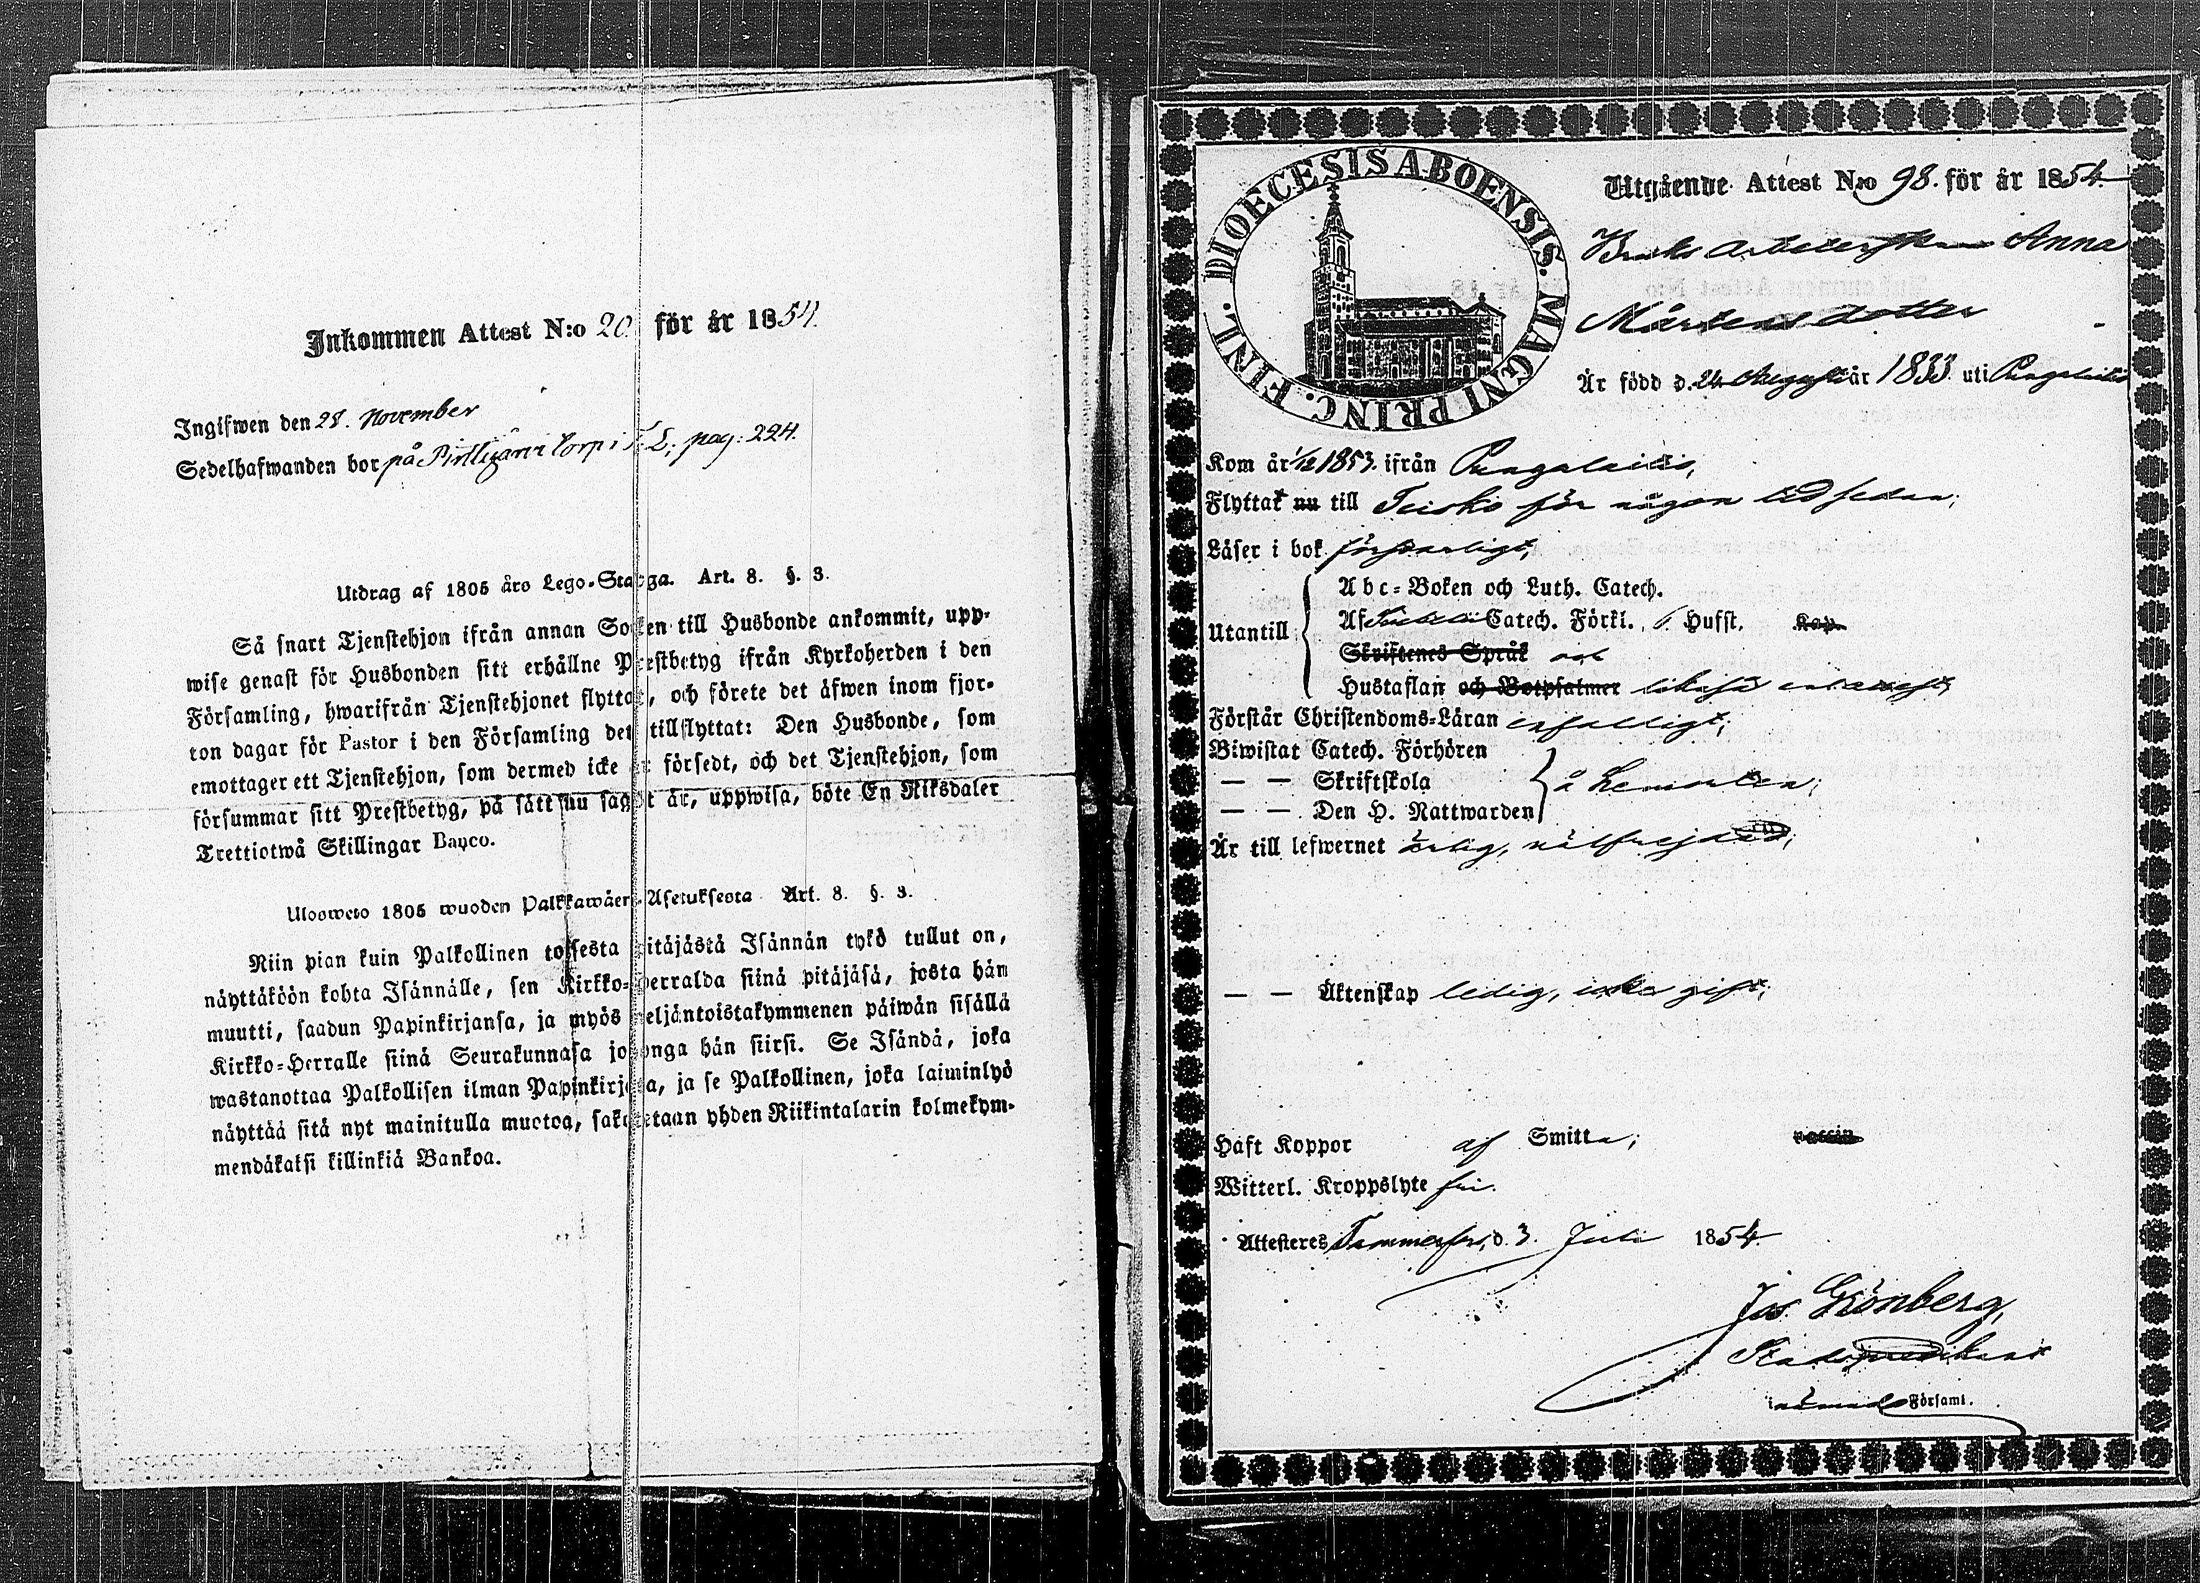 Inkommen Attest N:o 20 för år 1854.
Ingifwen den 28. November
Sedelhafwanden bor på torp i pag: 224.
Utdrag af 1805 års Lego-Stadga. Art. 8. §. 3.
Så snart Tjenstehjon ifrån annan Socken till Husbonde ankommit, upp-
wise genast för Husbonden sitt erhållne Prestbetyg ifrån Kyrkoherden i den
Församling, hwarifrån Tjenstehjonet flyttat, och förete det äfwen inom fjor-
ton dagar för Pastor i den Församling det tillflyttat: Den Husbonde, som
emottager ett Tjenstehjon, som dermed icke är försedt, och det Tjenstehjon, som
försummar sitt Prestbetyg, på sätt nu sagdt är, uppwisa, böte En Riksdaler
Trettiotwå Skillingar Banco.
Ulosweto 1805 wuoden Palkkawäen-Asetuksesta Art. 8. §. 3.
Niin pian kuin Palkollinen toisesta pitäjästä Isännän tykö tullut on,
näyttäköön kohta Isännälle, sen Kirkko-Herralda siinä pitäjäsä, josta hän
muutti, saadun Papinkirjansa, ja myös neljäntoistakymmenen päiwän sisällä
Kirkko-Herralle siinä Seurakunnasa johonga hän siirsi. Se Isändä, joka
wastanottaa Palkollisen ilman Papinkirjata, ja se Palkollinen, joka laiminlyö
näyttää sitä nyt mainitulla muotoa, sakotetaan yhden Riikintalarin kolmekym-
mendäkaksi killinkiä Bankoa.
DIOECESIS ABOENSIS. MAGNI PRINC. FINL.
Utgående Attest N:o 98. för år 1854.
Bruks arbeterskan Anna
Mårtensdotter
Är född d. 24 Augusti år 1833. uti Pungalaitio
Kom år 1/12 1853. ifrån Pungalaitio,
Flyttat nu till Teisko för någon tid sedan;
Läser i bok försvarligt,
Utantill
Abc-Boken och Luth. Catech.
Af Catech. Förkl. Hufst. Kap.
Skriftenes Språk och
Hustaflan och Botpsalmer likaså
Förstår Christendoms-Läran enfaldigt;
Biwistat Catech. Förhören
— — Skriftskola
— — Den H. Nattwarden
Är till lefwernet ärlig, välfrejdad,
— — Äktenskap ledig, icke gift;
Haft Koppor af Smitta;
Witterl. Kroppslyte fri.
Attesteres Tammerfors, d. 3. Juli 1854.
Jos. Grönberg,
Stadspredikant
i nämnde Församl.